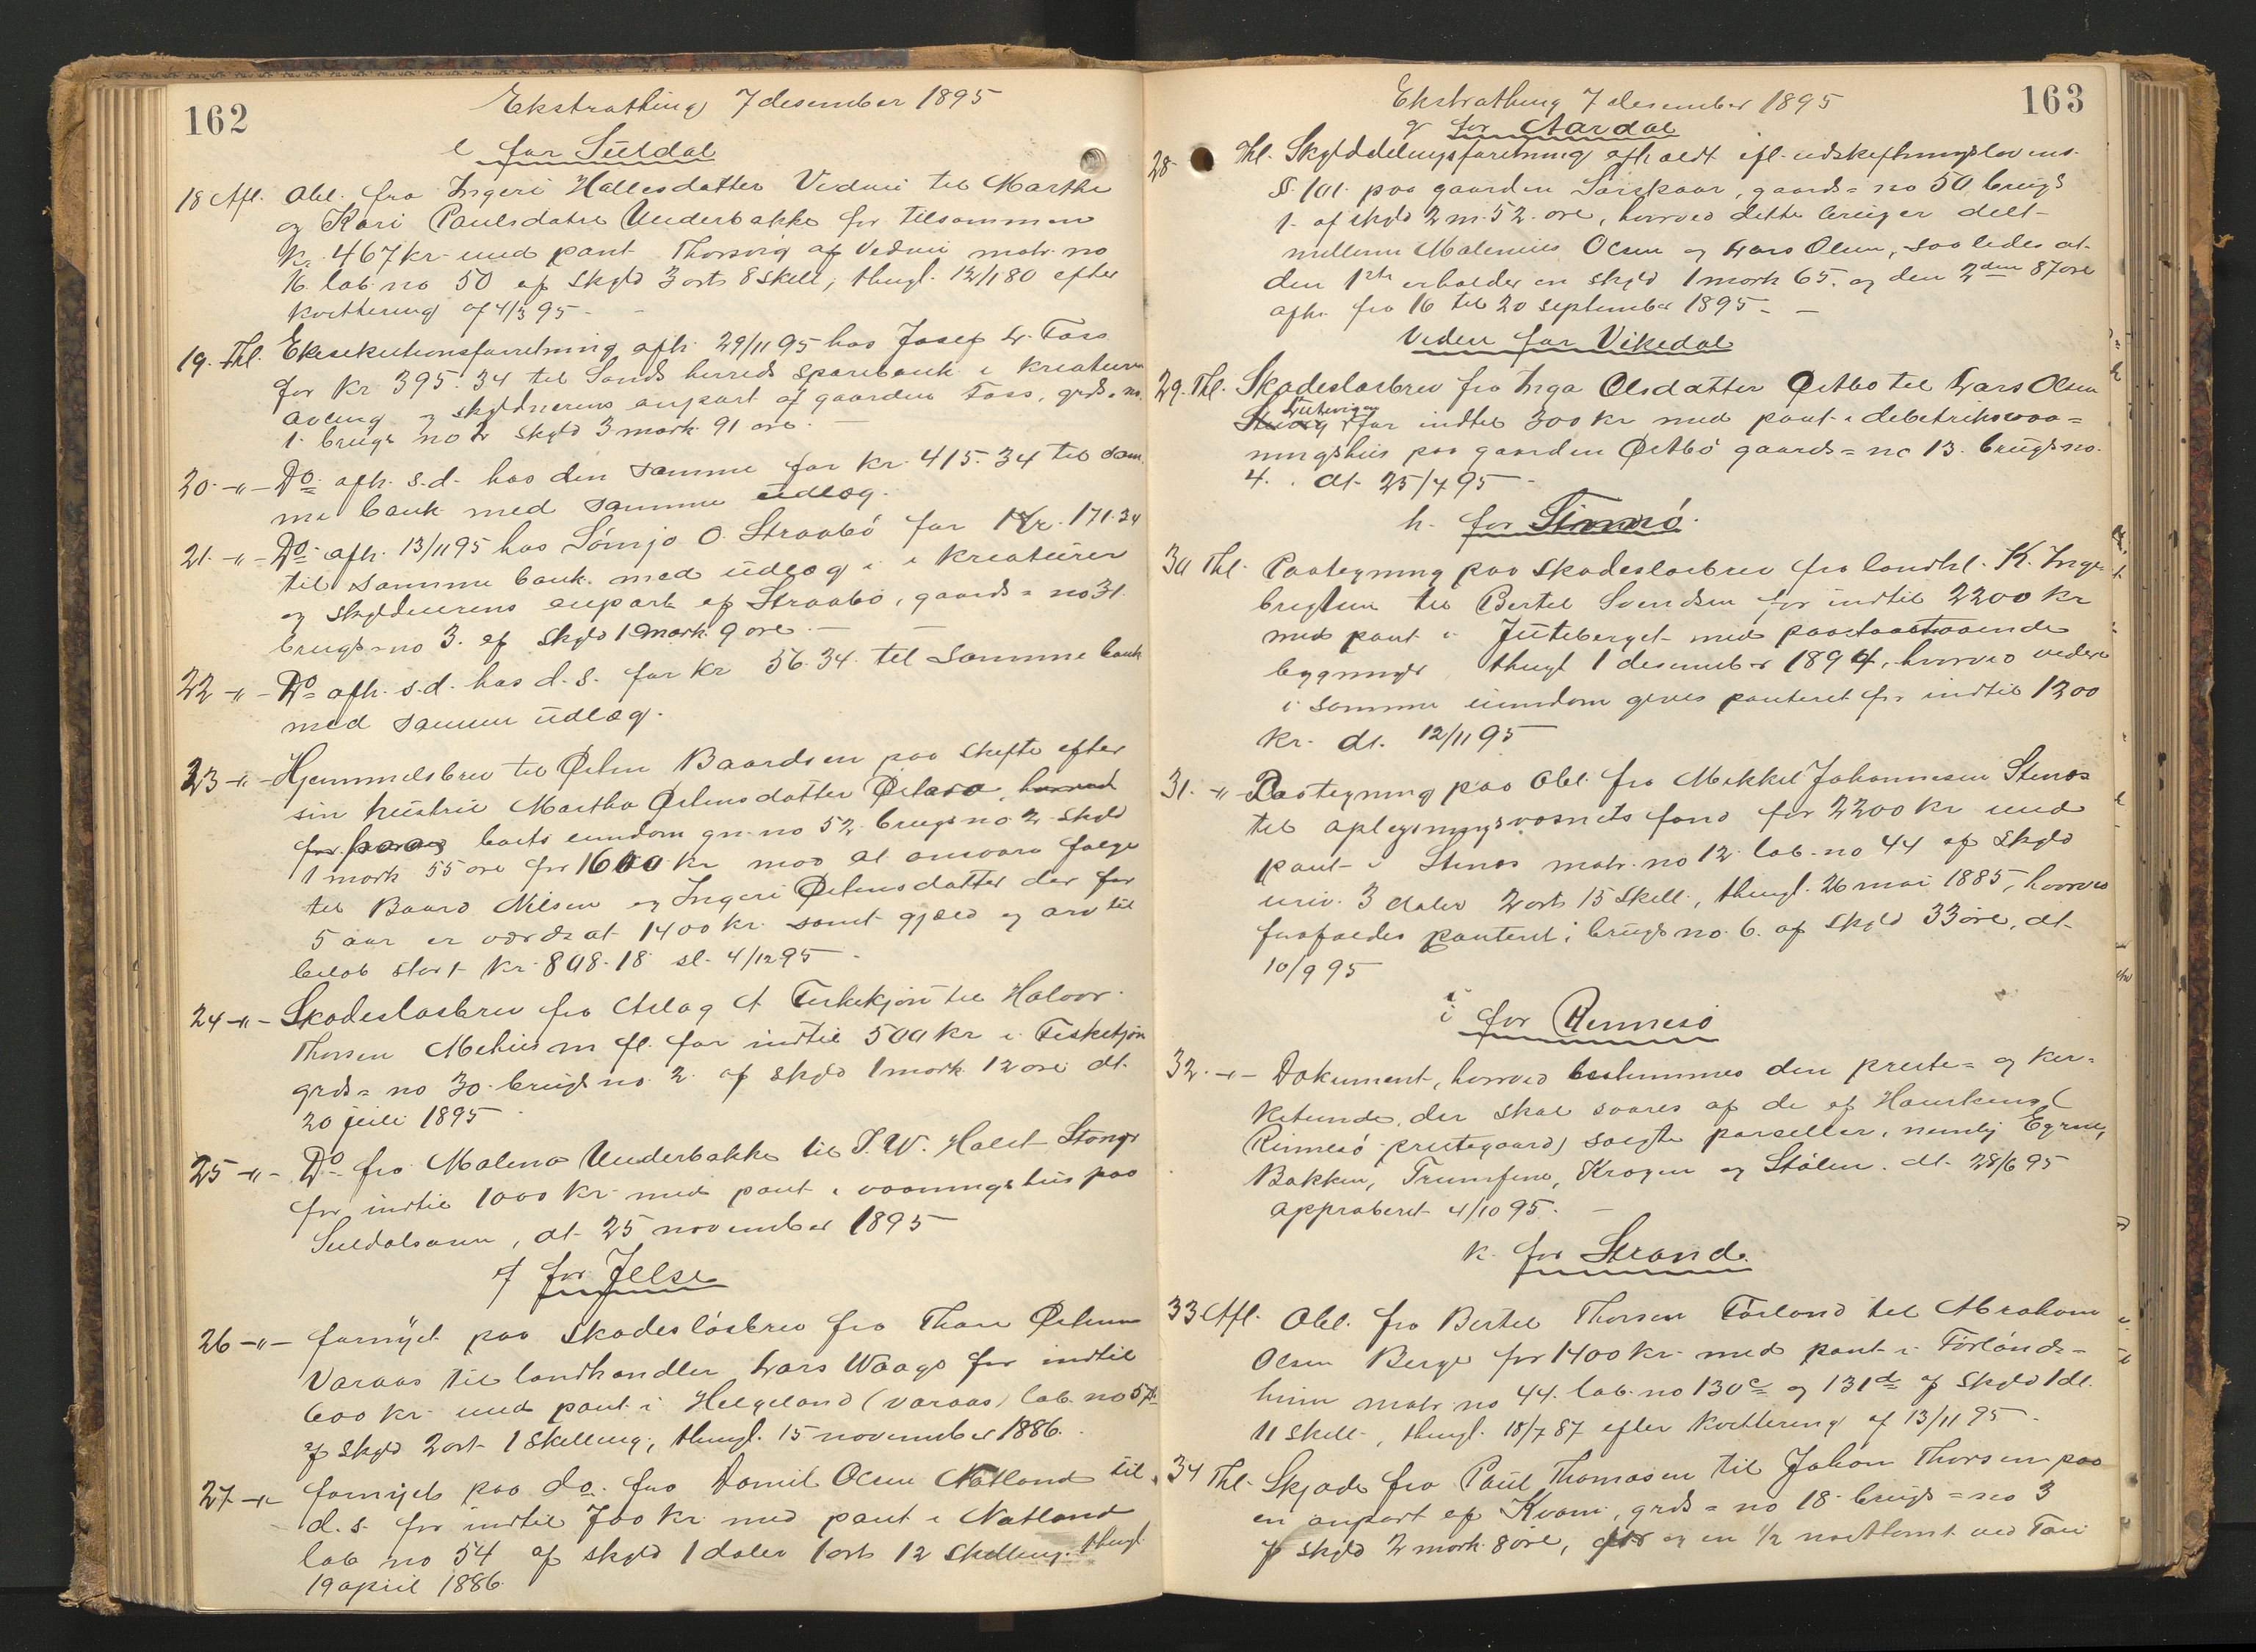 162
Ekstrathing 7 desember 1895
e for Suldal
18 Afl. Obl. fra Ingeri Hallesdatter Vedvii til Marthe
og Kari Paulsdatre Underbakke for tilsammen
kr. 467 kr. med pant Thorsvig af Vedvii matr. no
16 lab. no 50 af skyld 3 orts 8 skell, thingl. 12/1 80 efter
kvittering af 4/3 95 -
19. Thl. Eksekutionsforretning afh. 29/11 95 hos Josef L. Foss
for kr. 395.34 til Sands herreds sparebank i kreaturer
avling og skyldnerens anpart af gaarden Foss, grds. no.
1. brugs no 2 skyld 3 mark 91 øre. -
20. -"- Do. afh. s.d. hos den samme for kr. 415.34 til sam
me bank med samme udlæg.
21. -"- Do. afh. 13/11 95 hos Sömjo O. Straabö for kr. 171.34
til samme bank med udlæg i kreaturer
og skyldnerens anpart af Straabö, gaards = no 31.
brugs = no 3. af skyld 1 mark 9 øre. -
22 -"- Do afh. s.d. hos d.s. for kr 56.34. til samme bank
med samme udlæg.
23 -"- Hjemmelsbrev til Østen Baardsen paa skifte efter
sin hustru Martha Østensdatter
boets eiendom gr. no 52 brugs no 2 skyld
1 mark 55 øre for 1600 kr mod at ansvare følge
til Baard Nilsen og Ingeri Østensdatter der for
5 aar er værdsat 1400 kr. samt gjæld og arv til
beløb stort kr. 898.18 sl. 4/12 95 -
24 -"- Skadesløsbrev fra Aslag A Fisketjön til Halvor
Thorsen Mehus m fl. for indtil 500 kr i Fisketjön
grds = no 30. brugs no. 2. af skyld 1 mark 12 øre dt.
20 juli 1895
25 -"- Do fra Malena Underbakke til P. W. Halst Stange
for indtil 1000 kr. med pant i vaaningshus paa
Suldalsosen, dt. 25 november 1895
f for Jelse
26 -"- fornyet paa skadesløsbrev fra Thore Østensen
Varaas til landhandler Lars Waage for indtil
600 kr. med pant i Helgeland (Varaas) lab. no 57
af skyld 2 ort 1 skelling, thingl. 15 november 1886.
27 -"- fornyet paa do. fra Daniel Olsen Natland til
d. s. for indtil 700 kr. med pant i Natland
lab no 54 af skyld 1 daler 1 ort 12 skelling. thingl.
19 april 1886.
163
Ekstrathing 7 desember 1895
g for Aardal
28. Thl. Skylddelingsforretning afholdt ifl. udskiftningslovens
§. 101. paa gaarden Sörskaar, gaards = no 50 brugs
1. af skyld 2 m. 52 øre, hvorved dette brug er delt
mellem Malenius Olsen og Lars Olsen, saaledes at
den 1ste erholder en skyld 1 mark 65. og den 2den 87 øre
afh. fra 16 til 20 september 1895 - -
Videre for Vikedal
29. Thl. Skadesløsbrev fra Inga Olsdatter Østbø til Lars Olsen
for indtil 300 kr med pant i debetriks vaa=
ningshus paa gaarden Østbö gaards = no 13. brugs no.
4. dt. 25/7 95 -
h. for
30 Thl. Paategning paa skadesløsbrev fra landhl. K. Inge
brigtsen til Bertel Svendsen for indtil 2200 kr
med pant i Juteberget med paastaaende
bygninger thingl 1 desember 1894, hvorved videre
i samme eiendom gives panteret for indtil 1200
kr. dt. 12/11 95
31. -"- Paategning paa obl. fra Mikkel Johannesen Stenos
til oplysningsvæsnets fond for 2200 kr med
pant i Stenos matr. no 12 lab. no 44 af skyld
uriv. 3 daler 2 orts 15 skell., thingl. 26 mai 1885, hvorved
frafaldes panteret i brugs no. 6. af skyld 33 øre, dt.
10/9 95
i for Rennesö
32. -"- Dokument, hvorved bestemmes den preste = og kir=
ketiende, der skal svares af de af Hauskens (
Rennesö prestegaard) solgte parseller, nemlig Egrene,
Bakken, Trumfene, Krogen og Stölen. dt. 28/6 95
approberet 4/10 95. -
k. for Strand.
33 Afl. Obl. fra Bertel Thorsen Törland til Abraham
Olsen Berge for 1400 kr. med pant i Törlands=
heien matr. no 44. lab. no 130c og 131d af skyld 1 dl.
11 skell., thingl. 18/7 87 efter kvittering af 13/11 95 -
34 Thl. Skjøde fra Paul Thomasen til Johan Thorsen paa
en anpart af Kvam, grds = no 18 brugs = no 3
af skyld 2 mark 8 øre, og en 1/2 nosttomt ved Tau